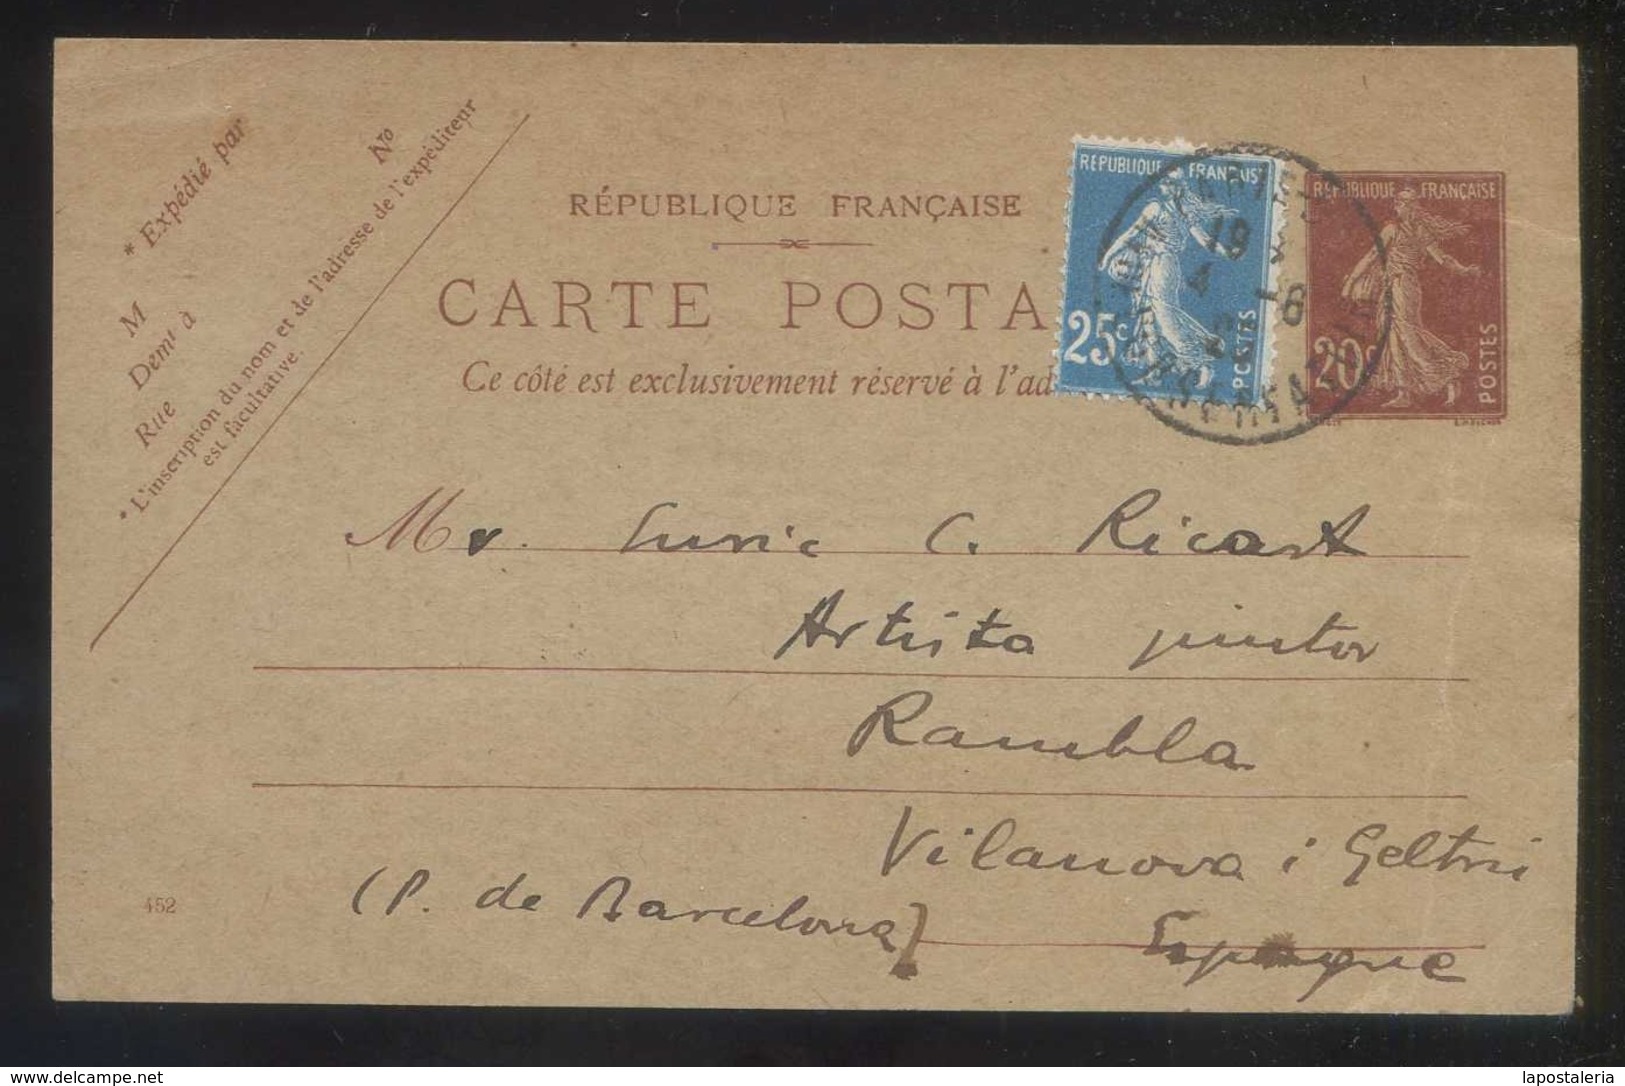 * Expédié par
M
Demt à
Rue
No
* L'inscription du nom et de l'adresse de l'expéditeur
est facultative.
RÉPUBLIQUE FRANÇAISE
CARTE POSTA
Ce côté est exclusivement réservé à l'ad
REPUBLIQUE FRANÇAISE
25c
POSTES
REPUBLIQUE FRANÇAISE
20c
POSTES
19
4 -6
Mr. Enric C. Ricart
Artista pintor
Rambla
Vilanova i Geltrú
(P. de Barcelona)
Espagne
452
www.delcampe.net
lapostaleria